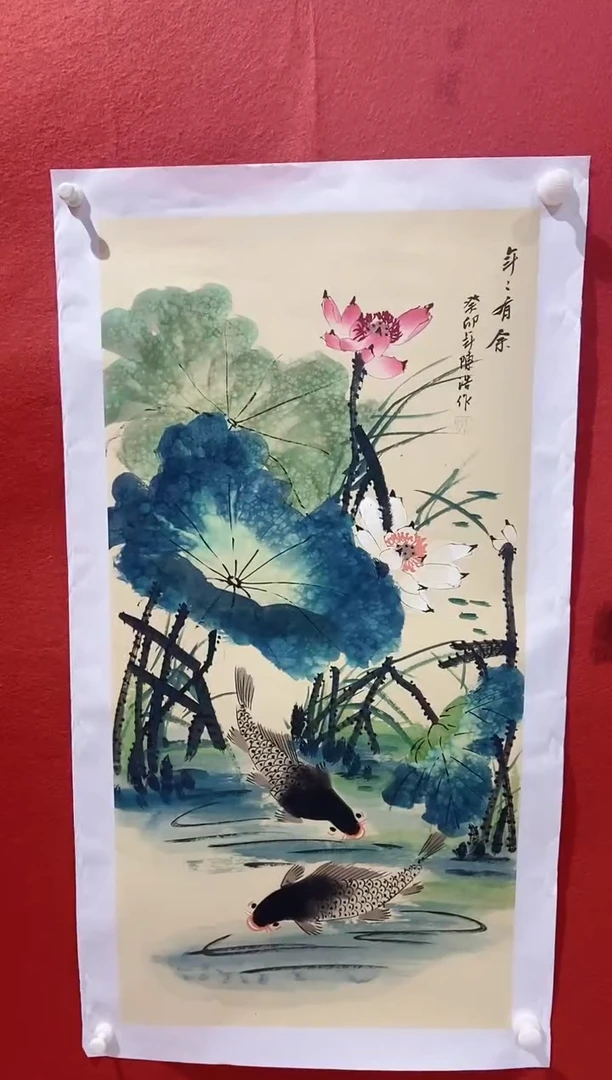 年〻有余
癸卯年陈浩作